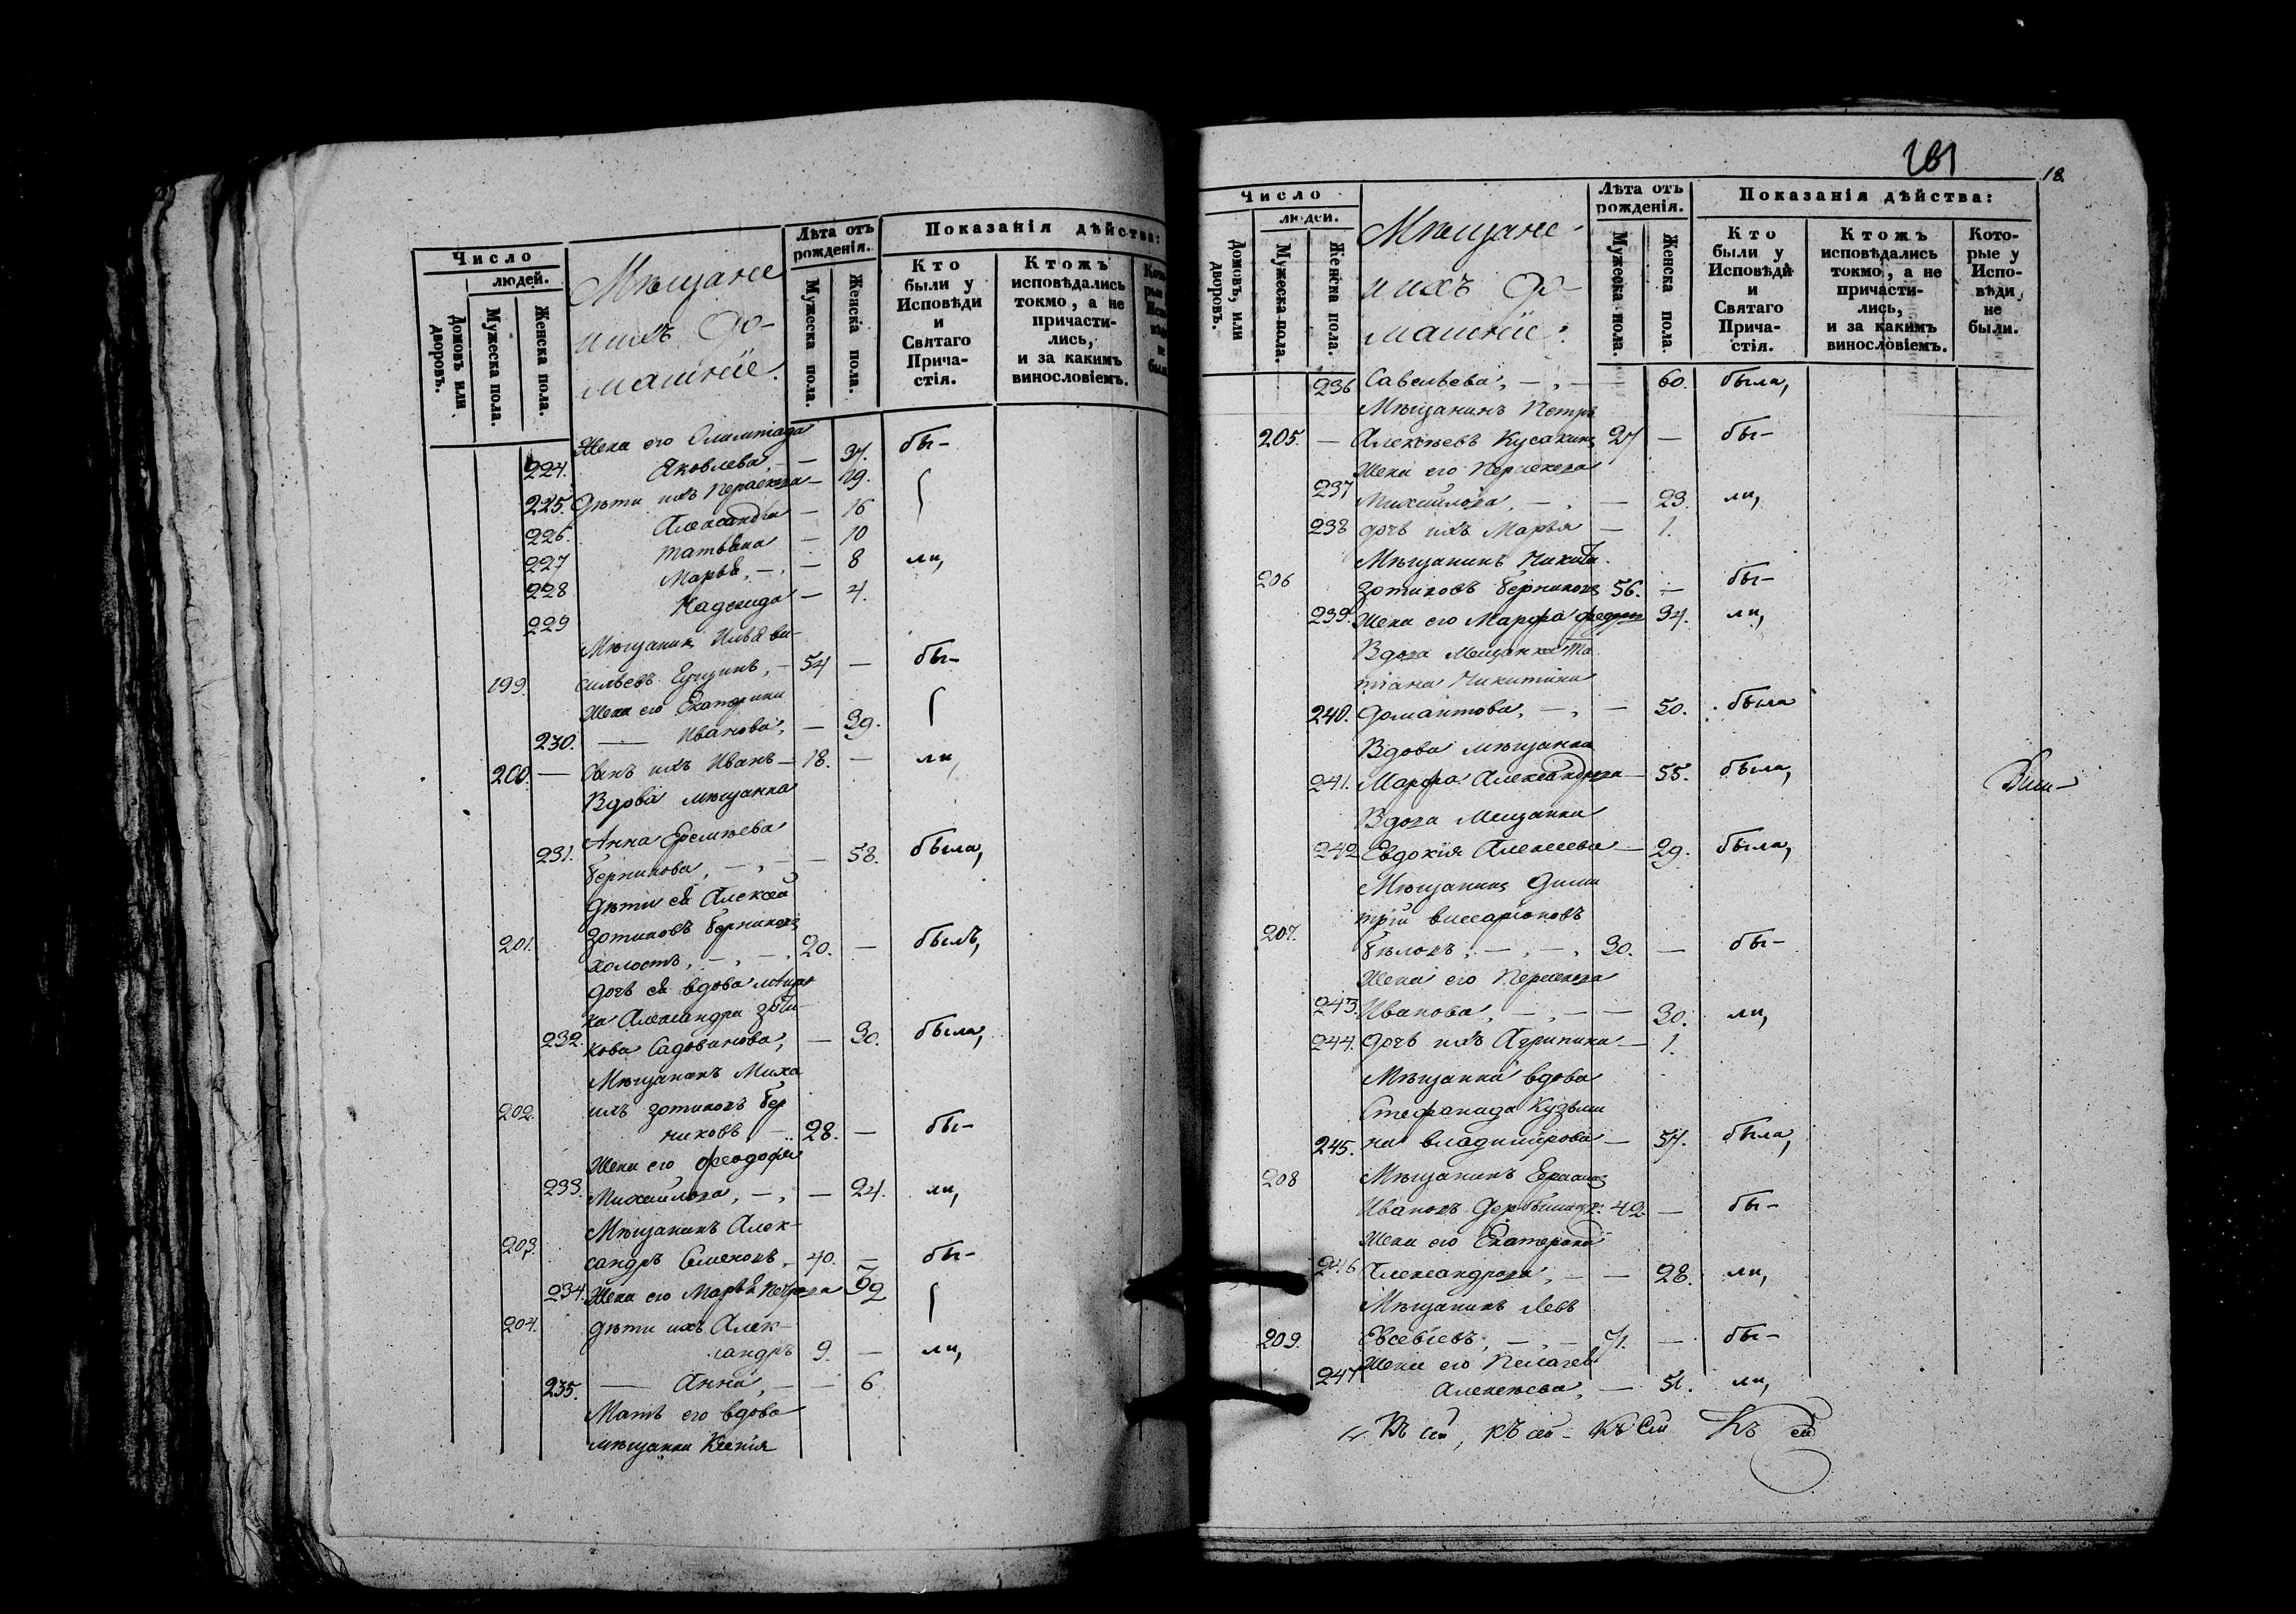 Число
людей.
Домовъ или дворовъ.
Мужеска пола.
Женска пола.
Мѣщане
и ихъ До-
машніе.
Лѣта отъ рожденія.
Мужеска пола.
Женска пола.
Показанія дѣйства:
Кто были у Исповѣди и Святаго Прича-стія.
Ктожъ исповѣдались токмо, а не причасти-лись, и за какимъ винословіемъ.
Жена его Олимпіада
224. Яковлева, — — 37. бы-
225. Дѣти ихъ Параскева — 19.
226. Александра — 16
227 Татьяна — 10
228 Марья, — , — 8 ли,
229 Надежда — 4.
Мѣщанинъ Илья Ва-
199. сильевъ Ершинъ, — 54 — бы-
Жена его Екатерина
230. — Иванова, — 39.
200. — Сынъ ихъ Иванъ — 18. — ли,
Вдова мѣщанка
231. Анна Еремѣева
Берникова, — , — — 58. была,
Дѣти ея Алексѣй
201. Зотиковъ Берниковъ
холостъ, — , — , 20. — былъ,
Дочь ея вдова мѣщан
ка Александра Зоти-
232. кова Садовникова, — 30. была,
Мѣщанинъ Миха
202. илъ Зотиковъ Бер
никовъ, — 28. — бы-
Жена его Феодора
233. Михайлова, — , — 24. ли,
Мѣщанинъ Алек-
203. сандръ Семеновъ, 40. — бы-
234. Жена его Марья Петрова 32
204. Дѣти ихъ Алек-
сандръ 9. — ли,
235. — Анна, — — 6
Мать его вдова
мѣщанка Ксенія
181
18
Число
людей.
Домовъ, или дворовъ.
Мужеска пола.
Женска пола.
Мѣщане
и ихъ До-
машніе.
Лѣта отъ рожденія.
Мужеска пола.
Женска пола.
Показанія дѣйства:
Кто были у Исповѣди и Святаго Прича-стія.
Ктожъ исповѣдались токмо, а не причасти-лись, и за какимъ винословіемъ.
Кото-рые у Испо-вѣди не были.
236 Савельева, — , — — 60. была,
Мѣщанинъ Петръ
205. — Алексѣевъ Кусакинъ 27 — бы-
Жена его Параскева
237 Михайлова, — , — 23. ли,
238 дочь ихъ Марья — 1.
Мѣщанинъ Никита
206 Зотиковъ Берниковъ 56. — бы-
239. Жена его Марфа Федорова 34. ли,
Вдова Мещанка Та
тіана Никитина
240. Домантова, — , — 50. была
Вдова мѣщанка
241. Марфа Александрова — 55. была,
Вдова Мещанка
242 Евдокія Алексеева — 29. была,
Мѣщанинъ Дими
трій Виссаріоновъ
207. Бѣловъ, — , — , 30. — бы-
Жена его Параскева
243. Иванова, — , — — 30. ли,
244. Дочь ихъ Агрипина — 1.
Мѣщанка вдова
Стефанида Кузьми
245. на Владимірова — 57. была,
208 Мѣщанинъ
Ивановъ 42. — бы-
Жена его Екатерина
246 Александрова, — — 28. ли,
Мѣщанинъ Левъ
209. Евсевіевъ, — , — 71. — бы-
247 Жена его Пелагея
Алексѣева, — 51. ли,
Къ сей, къ сей - Къ Сей Къ сей